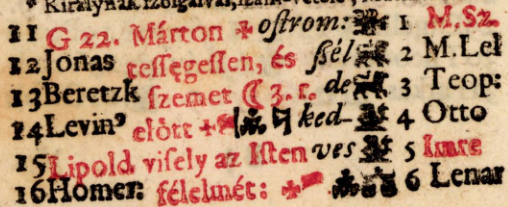 * Királynak szolgálvás,
11 G 22. Márton ostrom: 1 M.Sz.
12 Jonas tessęgessen, és ſſél- 2 M.Lel
13 Beretzk szemet ☾ 3. r. de 3 Teop:
14 Levinꝰ elòtt ked- 4 Otto
15 Lipold. viſely az Iſten ves 5 Imre
16 Homer: félelmét: 6 Lenar